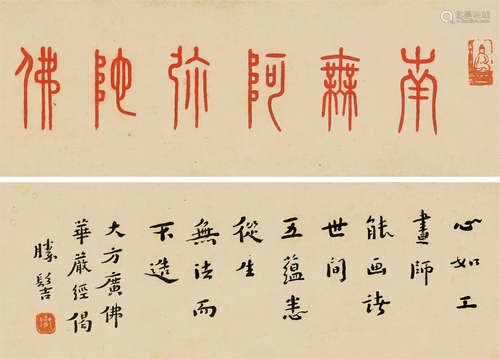 南無阿弥陀佛
心如工
畫師
能画諸
世間
五蘊悉
從生
無法而
不造
大方廣佛
華嚴經偈
勝髻